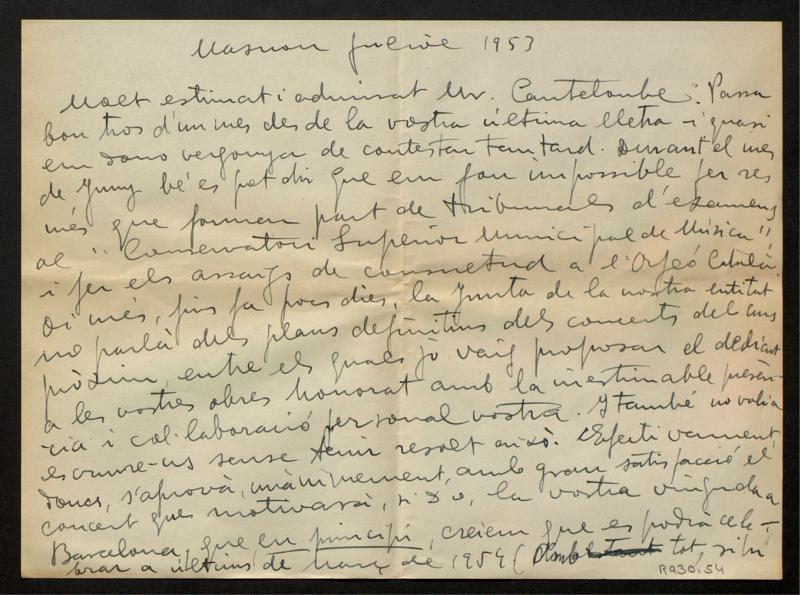 Masnou juliol 1953
Molt estimat i admirat Mr. Canteloube: Passa
bon tros d'un mes des de la vostra última lletra - i quasi
em dono vergonya de contestar tan tard. Durant el mes
de Juny bé es pot dir que em fou impossible fer res
més que formar part de tribunals d'examens
al "Conservatori Superior Municipal de Música"
i fer els assaigs de consuetud a l'Orfeó Català.
Di més, fins fa pocs dies, la Junta de la nostra entitat
no parlà dels plans definitius dels concerts del curs
pròxim, entre els quals jo vaig proposar el dedicat
a les vostres obres honorat amb la inestimable presèn-
cia i col·laboració personal vostra. I també no volia
escriure-us sense tenir resolt això. Efectivament,
doncs, s'aprovà, unànimement, amb gran satisfacció el
concert que motivarà, si D. v., la vostra vinguda a
Barcelona, que en principi, creiem que es podrà cele-
brar a últims de març de 1954 (Amb tot, si hi
R930.54